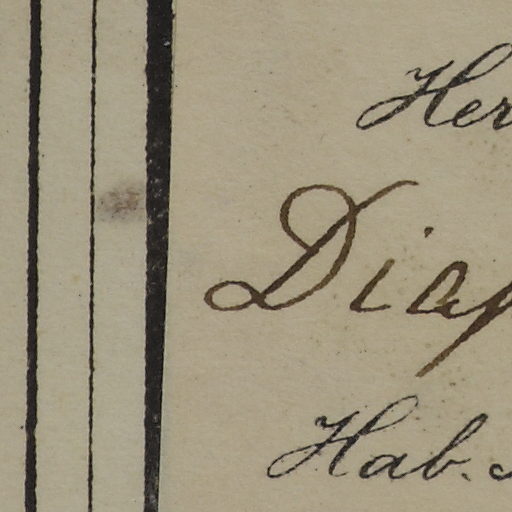 Her
Diap
Hab.